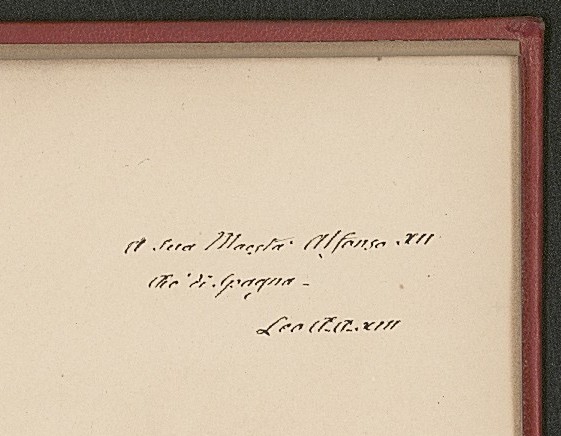 A Sua Maestà Alfonso XII
Rè di Spagna -
Leo P.P. XIII